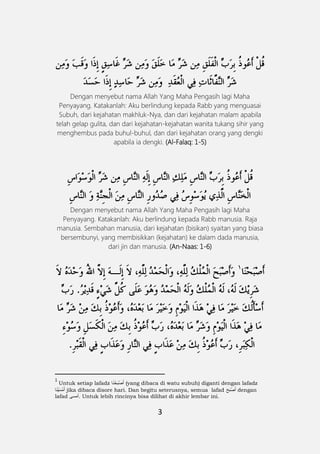 قُلْ أَعُوذُ بِرَبِّ الْفَلَقِ مِن شَرِّ مَا خَلَقَ وَمِن شَرِّ غَاسِقٍ إِذَا وَقَبَ وَمِن
شَرِّ النَّفَّاثَاتِ فِي الْعُقَدِ وَمِن شَرِّ حَاسِدٍ إِذَا حَسَدَ
Dengan menyebut nama Allah Yang Maha Pengasih lagi Maha
Penyayang. Katakanlah: Aku berlindung kepada Rabb yang menguasai
Subuh, dari kejahatan makhluk-Nya, dan dari kejahatan malam apabila
telah gelap gulita, dan dari kejahatan-kejahatan wanita tukang sihir yang
menghembus pada buhul-buhul, dan dari kejahatan orang yang dengki
apabila ia dengki. (Al-Falaq: 1-5)
قُلْ أَعُوذُ بِرَبِّ النَّاسِ مَلِكِ النَّاسِ إِلَهِ النَّاسِ مِن شَرِّ الْوَسْوَاسِ
الْخَنَّاسِ الَّذِي يُوَسْوِسُ فِي صُدُورِ النَّاسِ مِنَ الْجِنَّةِ وَ النَّاسِ
Dengan menyebut nama Allah Yang Maha Pengasih lagi Maha
Penyayang. Katakanlah: Aku berlindung kepada Rabb manusia. Raja
manusia. Sembahan manusia, dari kejahatan (bisikan) syaitan yang biasa
bersembunyi, yang membisikkan (kejahatan) ke dalam dada manusia,
dari jin dan manusia. (An-Naas: 1-6)
أَصْبَحْنَا ¹ وَأَصْبَحَ الْمُلْكُ لِلَّهِ، وَالْحَمْدُ لِلَّهِ، لَا إِلَـــهَ إِلاَّ اللهُ وَحْدَهُ لَا
شَرِيْكَ لَهُ، لَهُ الْمُلْكُ وَلَهُ الْحَمْدُ وَهُوَ عَلَى كُلِّ شَيْءٍ قَدِيْرُ. رَبِّ
أَسْأَلُكَ خَيْرَ مَا فِيْ هَذَا الْيَوْمِ وَخَيْرَ مَا بَعْدَهُ، وَأَعُوْذُ بِكَ مِنْ شَرِّ مَا
فِيْ هَذَا الْيَوْمِ وَشَرِّ مَا بَعْدَهُ، رَبِّ أَعُوْذُ بِكَ مِنَ الْكَسَلِ وَسُوْءِ
الْكِبَرِ، رَبِّ أَعُوْذُ بِكَ مِنْ عَذَابٍ فِي النَّارِ وَعَذَابٍ فِي الْقَبْرِ.
¹ Untuk setiap lafadz أَصْبَحْنَا (yang dibaca di watu subuh) diganti dengan lafadz
أَمْسَيْنَا jika dibaca disore hari. Dan begitu seterusnya, semua lafad أصبح dengan
lafad أمسى. Untuk lebih rincinya bisa dilihat di akhir lembar ini.
3